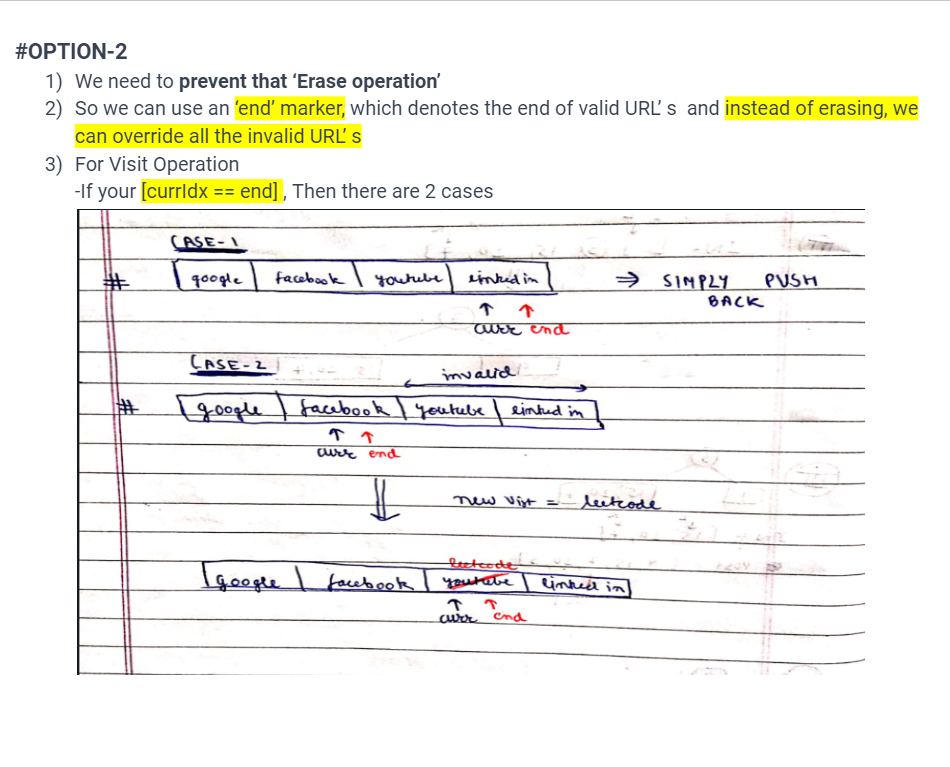 #OPTION-2
1) We need to prevent that ‘Erase operation’
2) So we can use an ‘end’ marker, which denotes the end of valid URL’ s and instead of erasing, we
can override all the invalid URL’ s
3) For Visit Operation
-If your [currIdx == end] , Then there are 2 cases
CASE-1
# google facebook youtube linked in ⇒ SIMPLY PUSH
BACK
↑ ↑
curr end
CASE-2
invalid
# google facebook youtube linked in
↑ ↑
curr end
⇓ new visit = leetcode
leetcode
google facebook youtube linked in
↑ ↑
curr end